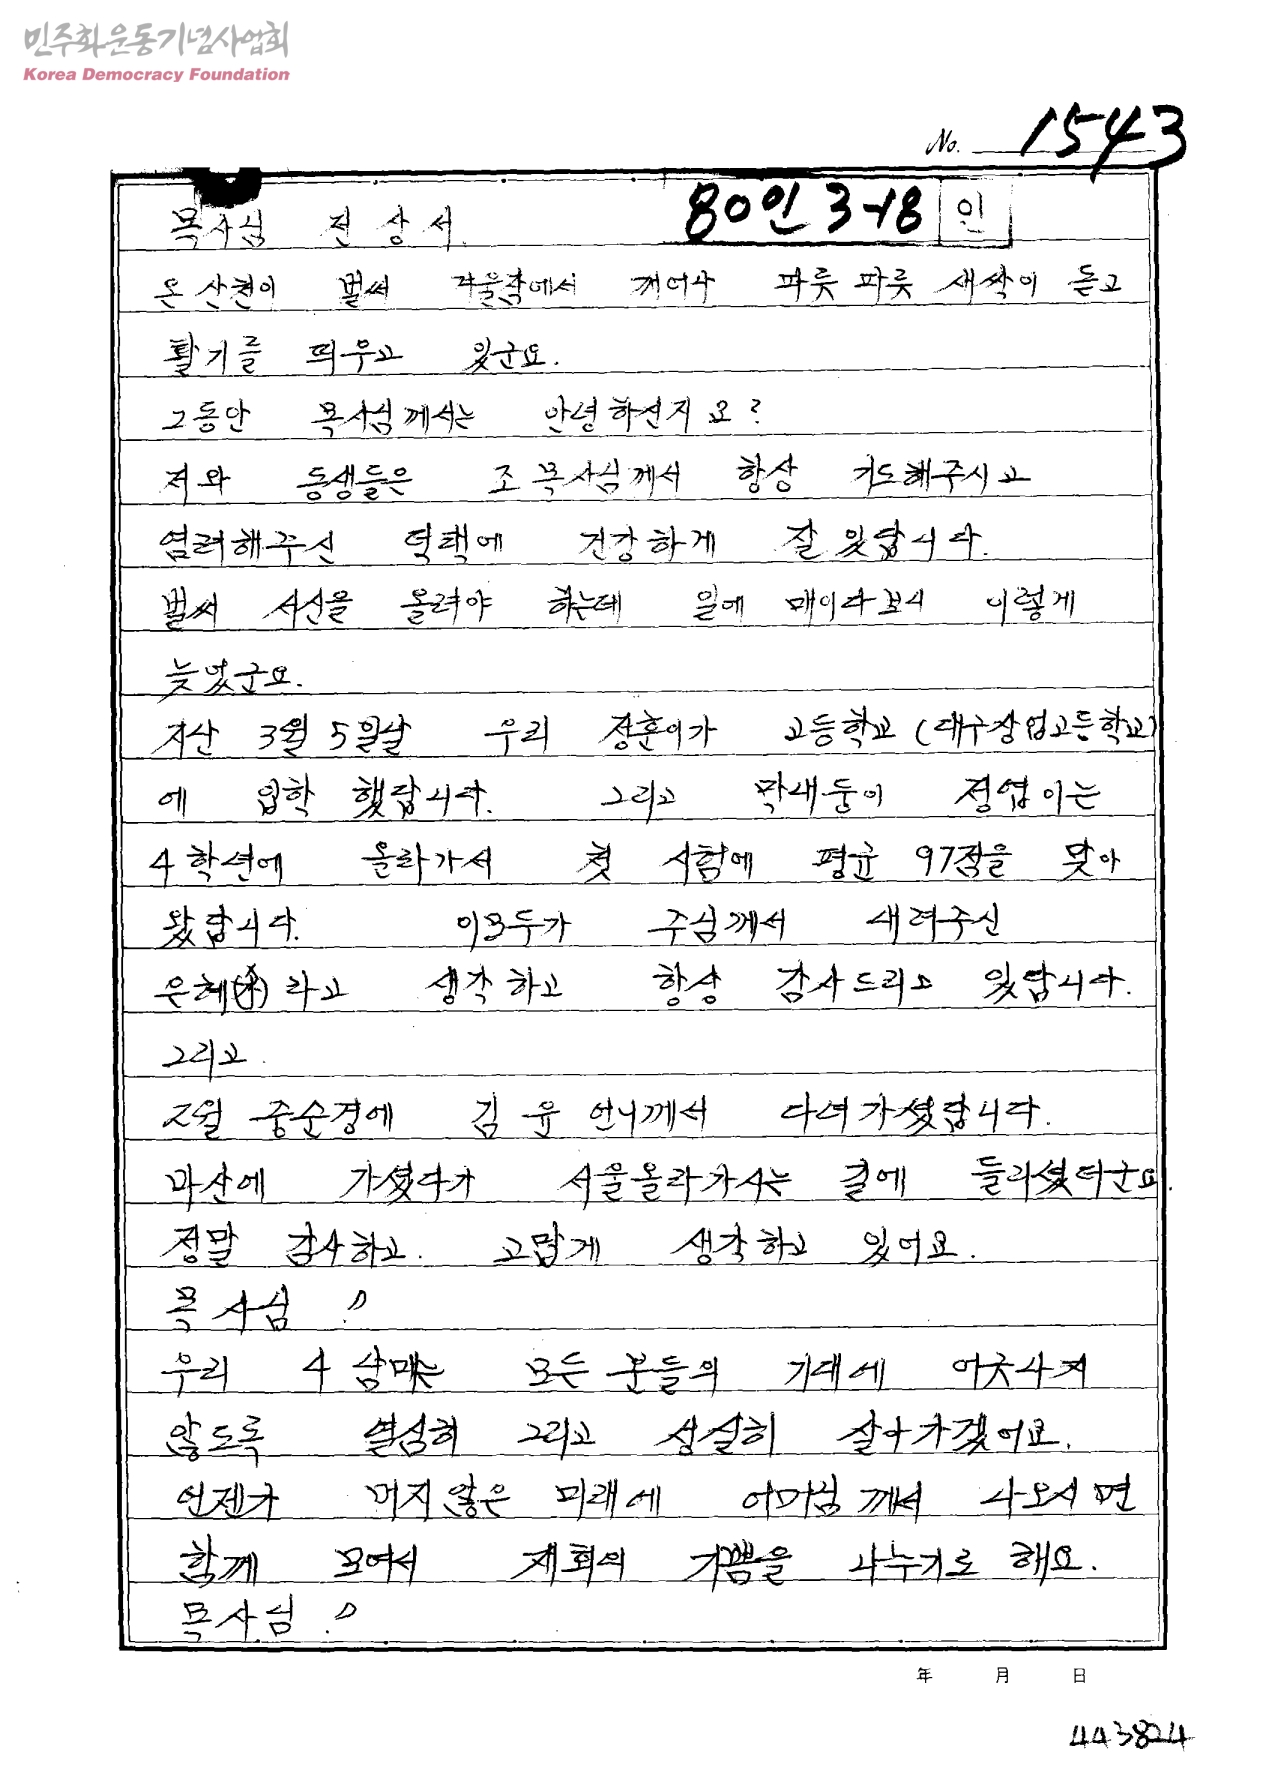 민주화운동기념사업회
Korea Democracy Foundation
No. 1543
80인 3-18 인
목사님 전 상 서.
온 산천이 벌써 겨울잠에서 깨어나 파릇 파릇 새싹이 돋고
활기를 띄우고 있군요.
그동안 목사님께서는 안녕하신지요?
저와 동생들은 조 목사님께서 항상 기도해주시고
염려해주신 덕택에 건강하게 잘 있답니다.
벌써 서신을 올려야 하는데 일에 매이다보니 이렇게
늦었군요.
지난 3월 5일날 우리 장훈이가 고등학교 (대구상업고등학교)
에 입학 했답니다. 그리고 막내둥이 정엽이는
4학년에 올라가서 첫 시험에 평균 97점을 맞아
왔답니다. 이모두가 주님께서 내려주신
은혜 라고 생각하고 항상 감사드리고 있답니다.
그리고.
2월 중순경에 김 윤 언니께서 다녀가셨답니다.
마산에 가셨다가 서울올라가시는 길에 들리셨더군요.
정말 감사하고. 고맙게 생각하고 있어요.
목사님 !
우리 4 남매는 모든 분들의 기대에 어긋나지
않도록 열심히 그리고 성실히 살아가겠어요.
언젠가 머지않은 미래에 어머님께서 나오시면
함께 모여서 재회의 기쁨을 나누기로 해요.
목사님 !
年 月 日
443824